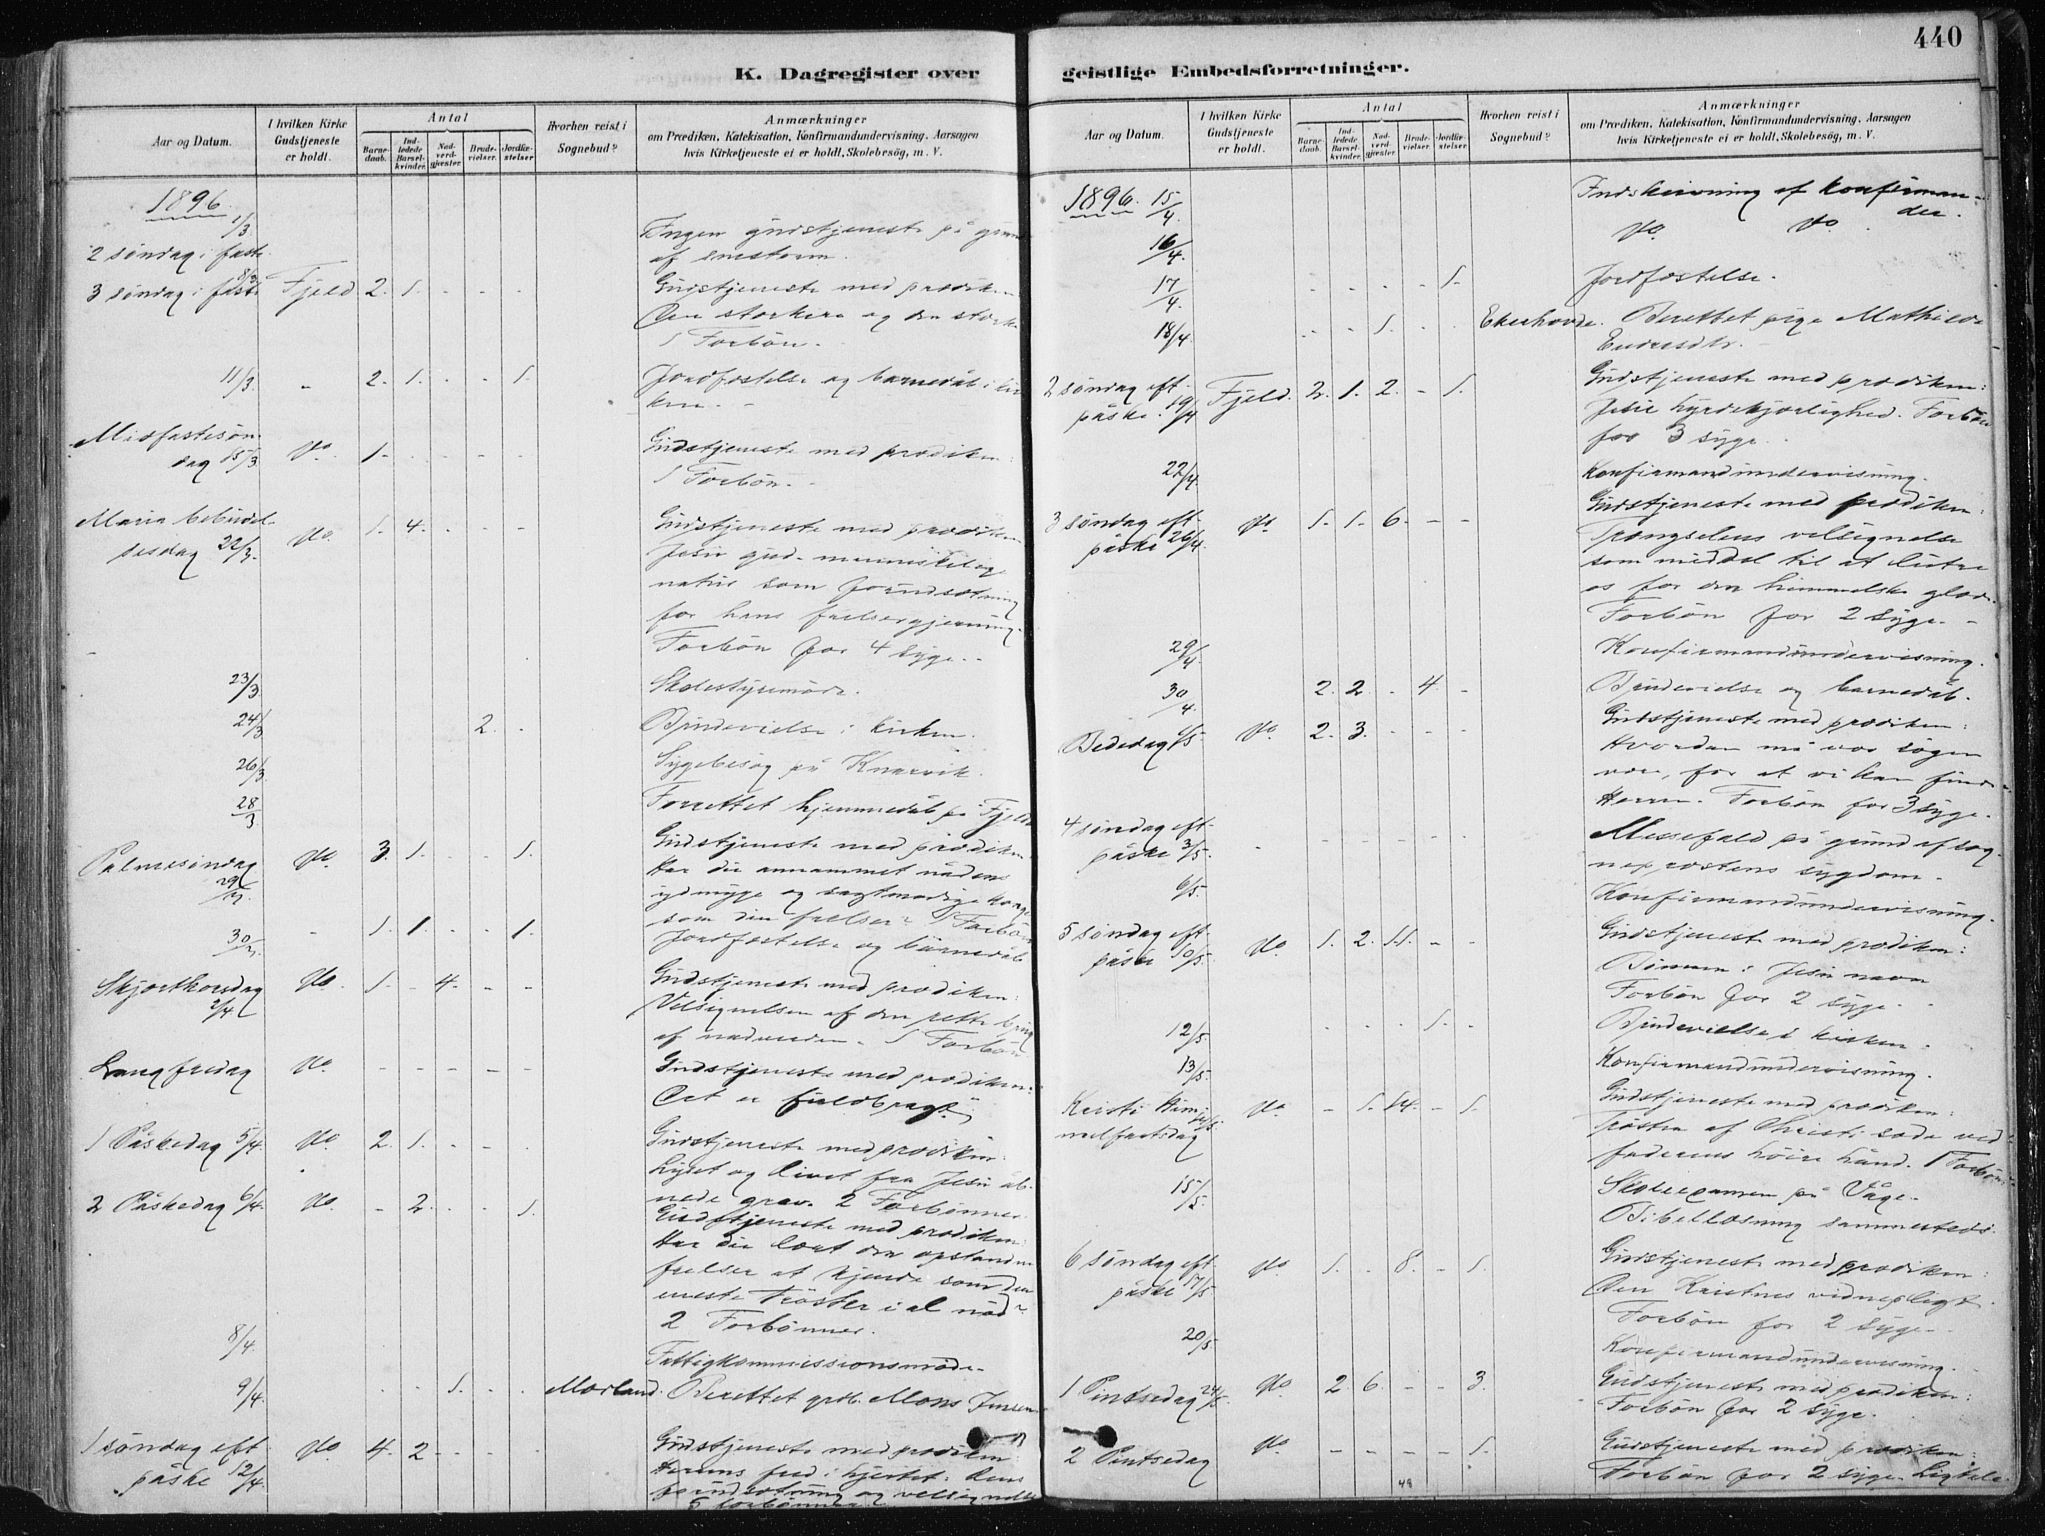 440
K. Dagregister over
geistlige Embedsforretninger.
Aar og Datum.
I hvilken Kirke Gudstjeneste er holdt.
Antal
Barnedaab.
Indledede Barselkvinder.
Nadverdgjester
Brudevielser.
Jordfæstelser
Hvorhen reist i Sognebud?
Anmærkninger
om Prædiken, Katekisation, Konfirmandundervisning, Aarsagen
hvis Kirketjeneste ei er holdt, Skolebesøg, m. V.
1896.
1/3.
2 søndag i faste.
Ingen gudstjeneste på grund
af snestorm.
3 søndag i faste 8/3 Fjeld 2. 1. - - -
Gudstjeneste med prædiken
Den stærkere og den stærke
1 Forbøn.
11/3. - 2. 1. - - 1.
Jordfæstelse og barnedåb i kir
ken. -
Midfastesøn
dag 15/3. do. 1. - - - -
Gudstjeneste med prædiken:
1 Forbøn. -
Maria bebudel-
sesdag 22/3. do. 1. 4. - - -
Gudstjeneste med prædiken
Jesu gud-menneskelige
natur som forudsætning
for hans frelsergjerning.
Forbøn for 4 syge. -
23/3. Skolestyremøde.
24/3. 2. - Brudevielse i kirken.
26/3. Sygebesøg på Knarvik.
28/3. Forrettet hjemmedåb på Fjeld
Palmesøndag
29/3. do. 3. 1. - - 1.
Gudstjeneste med prædiken
Har du annammet nådens
ydmyge og sagtmodige konge
som din frelser? 1 Forbøn
30/3. - 1. 1. - - 1.
Jordfæstelse og barnedåb
Skjærthorsdag
2/4 do. 1. - 4. - -
Gudstjeneste med prædiken:
Velsignelsen af den rette brug
af nadverden. 1 Forbøn
Langfredag do. - - - - -
Gudstjeneste med prædiken:
Det er fuldbragt.
1 Påskedag 5/4. do. 2. 1. - - -
Gudstjeneste med prædiken:
Lyset og livet fra Jesu åb-
nede grav. 2 Forbønner.
2 Påskedag 6/4. do. - 2. - - 1.
Gudstjeneste med prædiken:
Har du lært den opstandne
frelser at kjende som den
eneste trøster i al nød?
2 Forbønner.
8/4. Fattigkommissionsmøde.
9/4. - - 1. - - Morland. Berettet grdb. Mons Jensen
1 søndag eft
påske 12/4. do. 4. 2. - - -
Gudstjeneste med prædiken
Herrens fred i hjertet: Dens
forudsætning og velsignelse
5 forbønner.
Aar og Datum.
I hvilken Kirke Gudstjeneste er holdt.
Antal
Barnedaab.
Indledede Barselkvinder.
Nadverdgjester
Brudevielser.
Jordfæstelser
Hvorhen reist i Sognebud?
Anmærkninger
om Prædiken, Katekisation, Konfirmandundervisning, Aarsagen
hvis Kirketjeneste ei er holdt, Skolebesøg, m. V.
1896. 15/4.
Indskrivning af konfirman-
der.
16/4. do. do.
17/4. - - - - 1. Jordfæstelse.
18/4. - - 1. - - Ekerhovde. Berettet pige Mathilde
Endresdtr.
2 søndag eft.
påske. 19/4 Fjeld. 2. 1. 2. - 1.
Gudstjeneste med prædiken:
Jesu hyrdekjærlighed. Forbøn
for 3 syge.
22/4. Konfirmandundervisning.
3 søndag eft-
påske 26/4. do. 1. 1. 6. - -
Gudstjeneste med prædiken:
Trængselens velsignelse
som middel til at lutre
os for den himmelske glæde.
Forbøn for 2 syge. -
29/4. Konfirmandundervisning.
30/4. 2. 2. - 4. - Brudevielse og barnedåb.
Bededag 1/5. do. 2. 3. - - -
Gudstjeneste med prædiken:
Hvordan må vor søgen
være, for at vi kan finde
Herren. Forbøn for 3 syge.
4 søndag eft-
påske 3/5. - - - - - -
Messefald på grund af sog-
nepræstens sygdom.
6/5. Konfirmandundervisning.
5 søndag eft-
påske 10/5. do. 1. 2. 11. - -
Gudstjeneste med prædiken:
Bønnen i Jesu navn
Forbøn for 2 syge. -
12/5. - - - 1. - Brudevielse i kirken.
13/5. Konfirmandundervisning.
Kristi Him-
melfartsdag 14/5. do. - 1. 14. - 1.
Gudstjeneste med prædiken:
Trøsten af Christi sæde ved
faderens høire hånd. 1 Forbøn
15/5. Skoleexamen på Våge.
Bibellæsning sammesteds.
6 søndag eft-
påske 17/5 do. 1. - 8. - 1.
Gudstjeneste med prædiken:
Den Kristnes vidnepligt.
Forbøn for 2 syge. -
20/5. Konfirmandundervisning.
1 Pintsedag 24/5. do. 2. 6. - - 3.
Gudstjeneste med prædiken:
Forbøn for 2 syge.
2 Pintsedag do. - - - - 1.
Gudstjeneste med prædiken:
Forbøn for 2 syge.
48